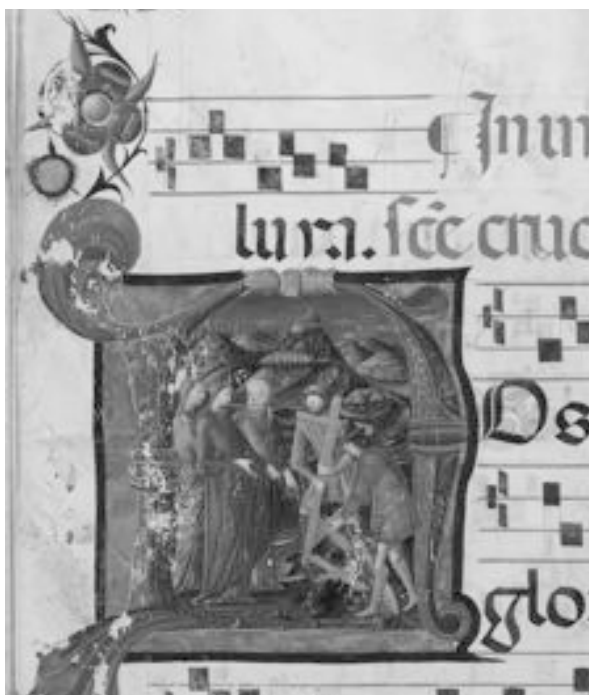 In in
lura. scē cruc
N
os
glo